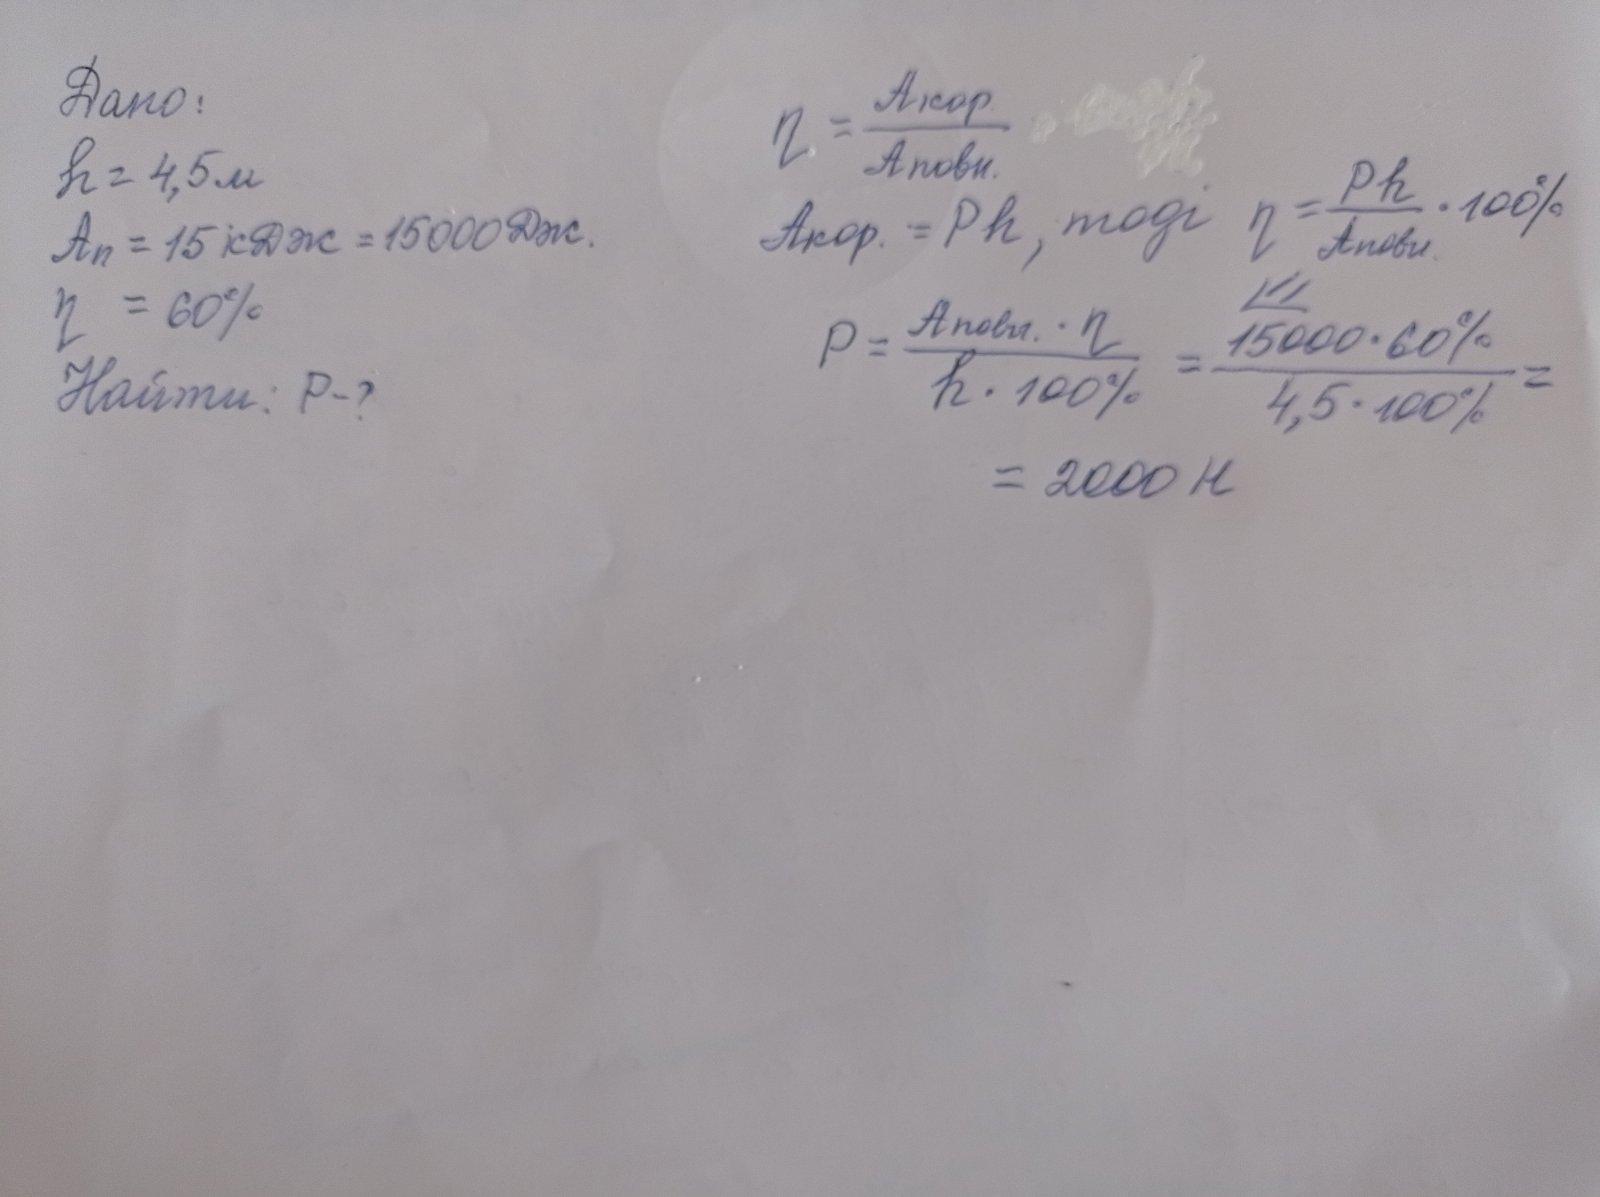 Дано:
h = 4,5 м
Aп = 15 кДж = 15000 Дж.
η = 60%
Найти: P-?
η = Aкор / Aповн.
Aкор. = Ph, тоді η = Ph / Aповн. · 100%
P = Aповн. · η / h · 100% = 15000 · 60% / 4,5 · 100% =
= 2000 Н